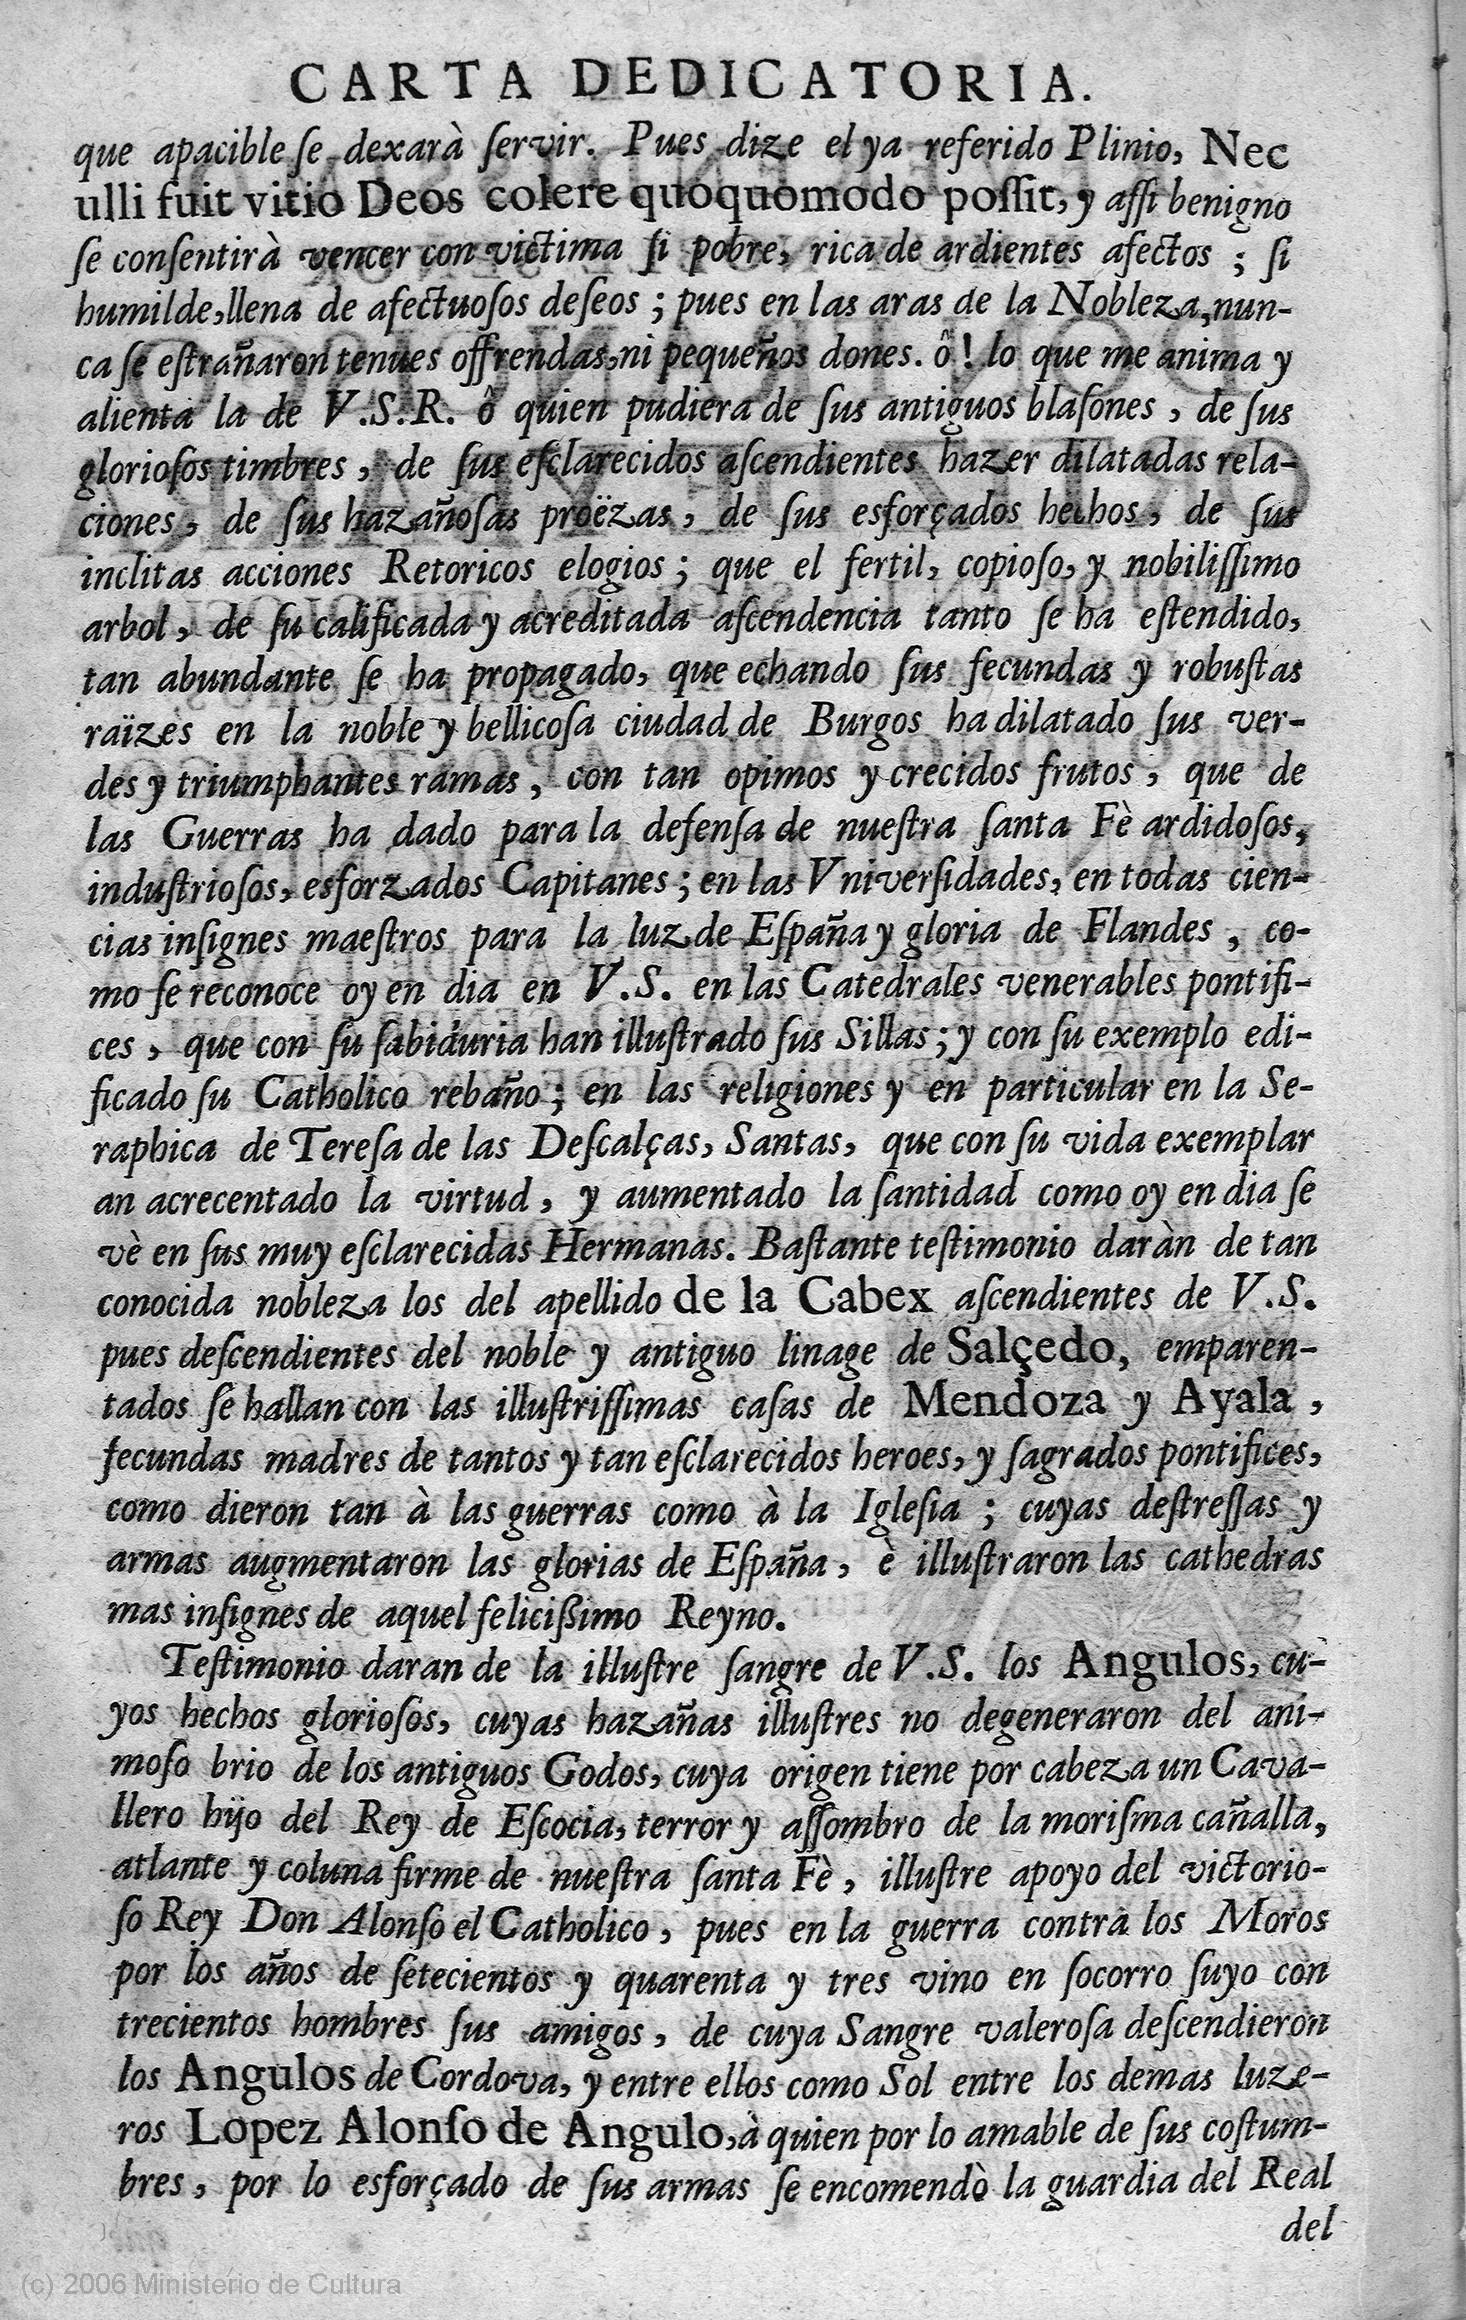 CARTA DEDICATORIA.
que apacible ſe dexarà ſervir. Pues dize el ya referido Plinio, Nec
ulli fuit vitio Deos colere quoquomodo poſſit, y aſſi benigno
ſe conſentirà vencer con victima ſi pobre, rica de ardientes afectos ; ſi
humilde, llena de afectuoſos deſeos ; pues en las aras de la Nobleza, nun-
ca ſe eſtrañaron tenues offrendas, ni pequeños dones. ô! lo que me anima y
alienta la de V.S.R. ô quien pudiera de ſus antiguos blaſones , de ſus
glorioſos timbres , de ſus eſclarecidos aſcendientes hazer dilatadas rela-
ciones, de ſus hazañoſas proëzas, de ſus esforçados hechos, de ſus
inclitas acciones Retoricos elogios ; que el fertil, copioſo, y nobiliſſimo
arbol, de ſu calificada y acreditada aſcendencia tanto ſe ha eſtendido,
tan abundante ſe ha propagado, que echando ſus fecundas y robuſtas
raïzes en la noble y bellicoſa ciudad de Burgos ha dilatado ſus ver-
des y triumphantes ramas , con tan opimos y crecidos frutos , que de
las Guerras ha dado para la defenſa de nueſtra ſanta Fè ardidoſos,
induſtrioſos, esforzados Capitanes ; en las Vniverſidades, en todas cien-
cias inſignes maeſtros para la luz de Eſpaña y gloria de Flandes , co-
mo ſe reconoce oy en dia en V.S. en las Catedrales venerables pontifi-
ces , que con ſu ſabiduria han illuſtrado ſus Sillas ; y con ſu exemplo edi-
ficado ſu Catholico rebaño ; en las religiones y en particular en la Se-
raphica de Tereſa de las Deſcalças, Santas, que con ſu vida exemplar
an acrecentado la virtud , y aumentado la ſantidad como oy en dia ſe
vè en ſus muy eſclarecidas Hermanas. Baſtante teſtimonio daràn de tan
conocida nobleza los del apellido de la Cabex aſcendientes de V.S.
pues deſcendientes del noble y antiguo linage de Salçedo, emparen-
tados ſe hallan con las illuſtriſſimas caſas de Mendoza y Ayala ,
fecundas madres de tantos y tan eſclarecidos heroes, y ſagrados pontifices,
como dieron tan à las guerras como à la Igleſia ; cuyas deſtreſſas y
armas augmentaron las glorias de Eſpaña , è illuſtraron las cathedras
mas inſignes de aquel felicißimo Reyno.
Teſtimonio daran de la illuſtre ſangre de V.S. los Angulos, cu-
yos hechos glorioſos, cuyas hazañas illuſtres no degeneraron del ani-
moſo brio de los antiguos Godos, cuya origen tiene por cabeza un Cava-
llero hijo del Rey de Eſcocia, terror y aſſombro de la moriſma cañalla,
atlante y coluna firme de nueſtra ſanta Fè , illuſtre apoyo del victorio-
ſo Rey Don Alonſo el Catholico , pues en la guerra contra los Moros
por los años de ſetecientos y quarenta y tres vino en ſocorro ſuyo con
trecientos hombres ſus amigos , de cuya Sangre valeroſa deſcendieron
los Angulos de Cordova, y entre ellos como Sol entre los demas luze-
ros Lopez Alonſo de Angulo, à quien por lo amable de ſus coſtum-
bres , por lo esforçado de ſus armas ſe encomendò la guardia del Real
del
(c) 2006 Ministerio de Cultura